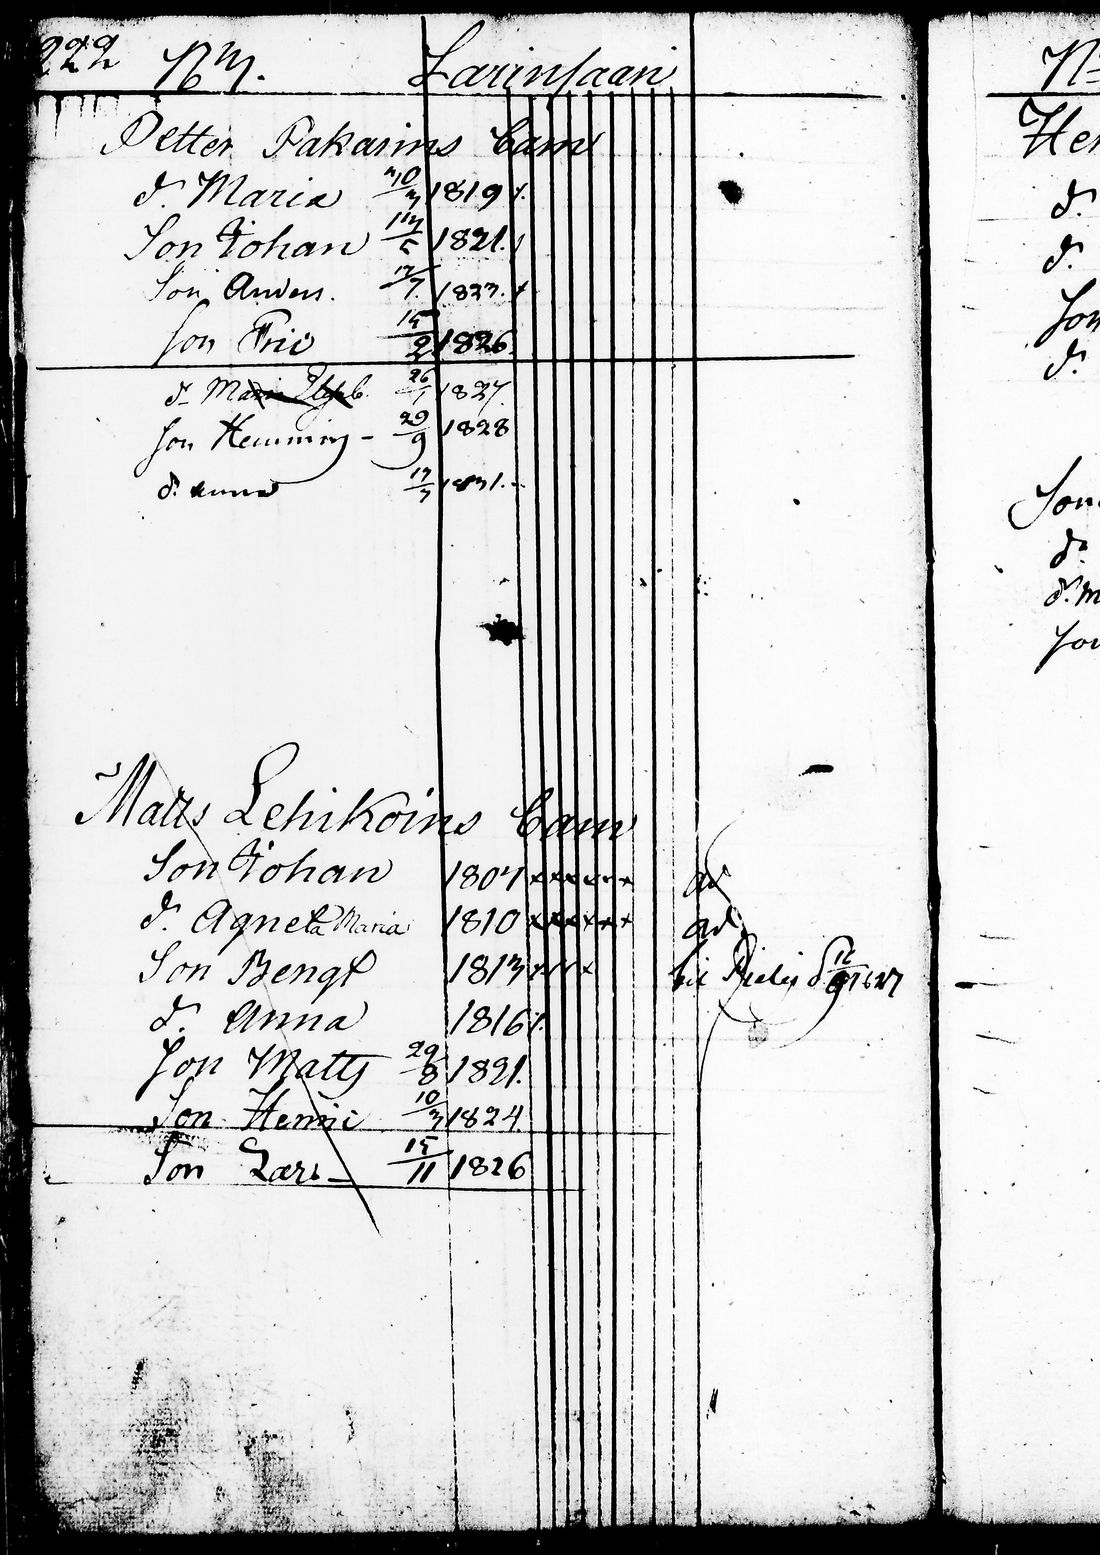 222 N 3. Larinsaari
Petter Pakarins barn
d. Maria 30/3 1819
Son Johan 1821
Son Anders. 12/7 1823.
Son Eric 15/2 1826
d. Maria Elisab. 26/1 1827
Son Hemming - 29/9 1828
d. Anna 13/3 1831.
Matts Lehikoins barn
Son Johan 1807 xxxxxx
d. Agneta Maria 1810 xxxxxx
Son Bengt 1813
d. Anna 1816
Son Matts 29/8 1821.
Son Henric 10/3 1824
Son Lars 15/11 1826
N
Hen
d.
d.
Son
d.
Son
d.
d. M
Son